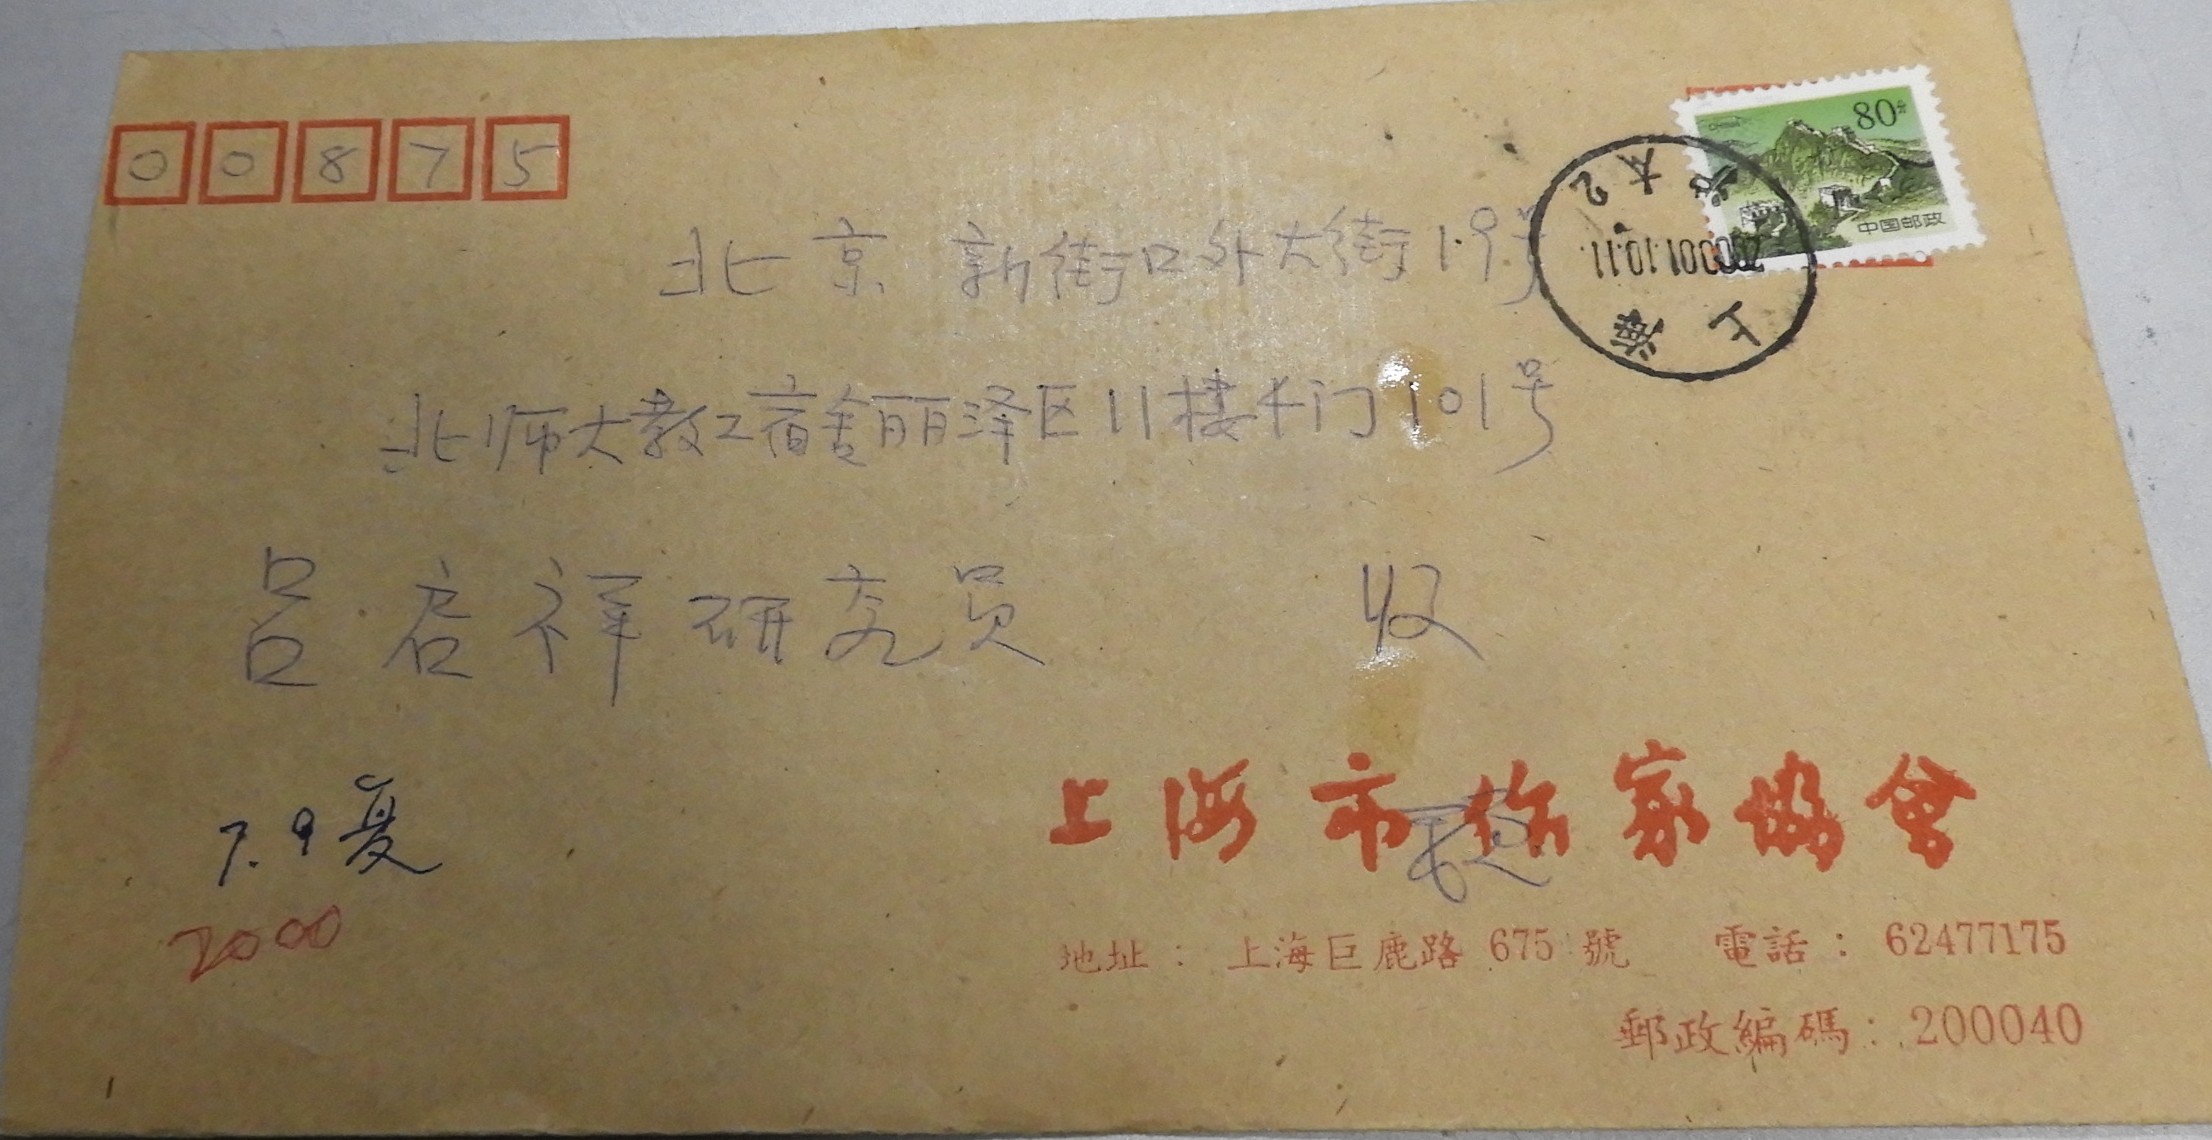 00875
80分
中国邮政
上海
2000.01.10.11
北京 新街口外大街19号
北师大教工宿舍丽泽区11楼4门101号
吕启祥研究员 收
上海市作家協會
7.9复
2000
地址：上海巨鹿路 675 號 電話：62477175
郵政編碼：200040